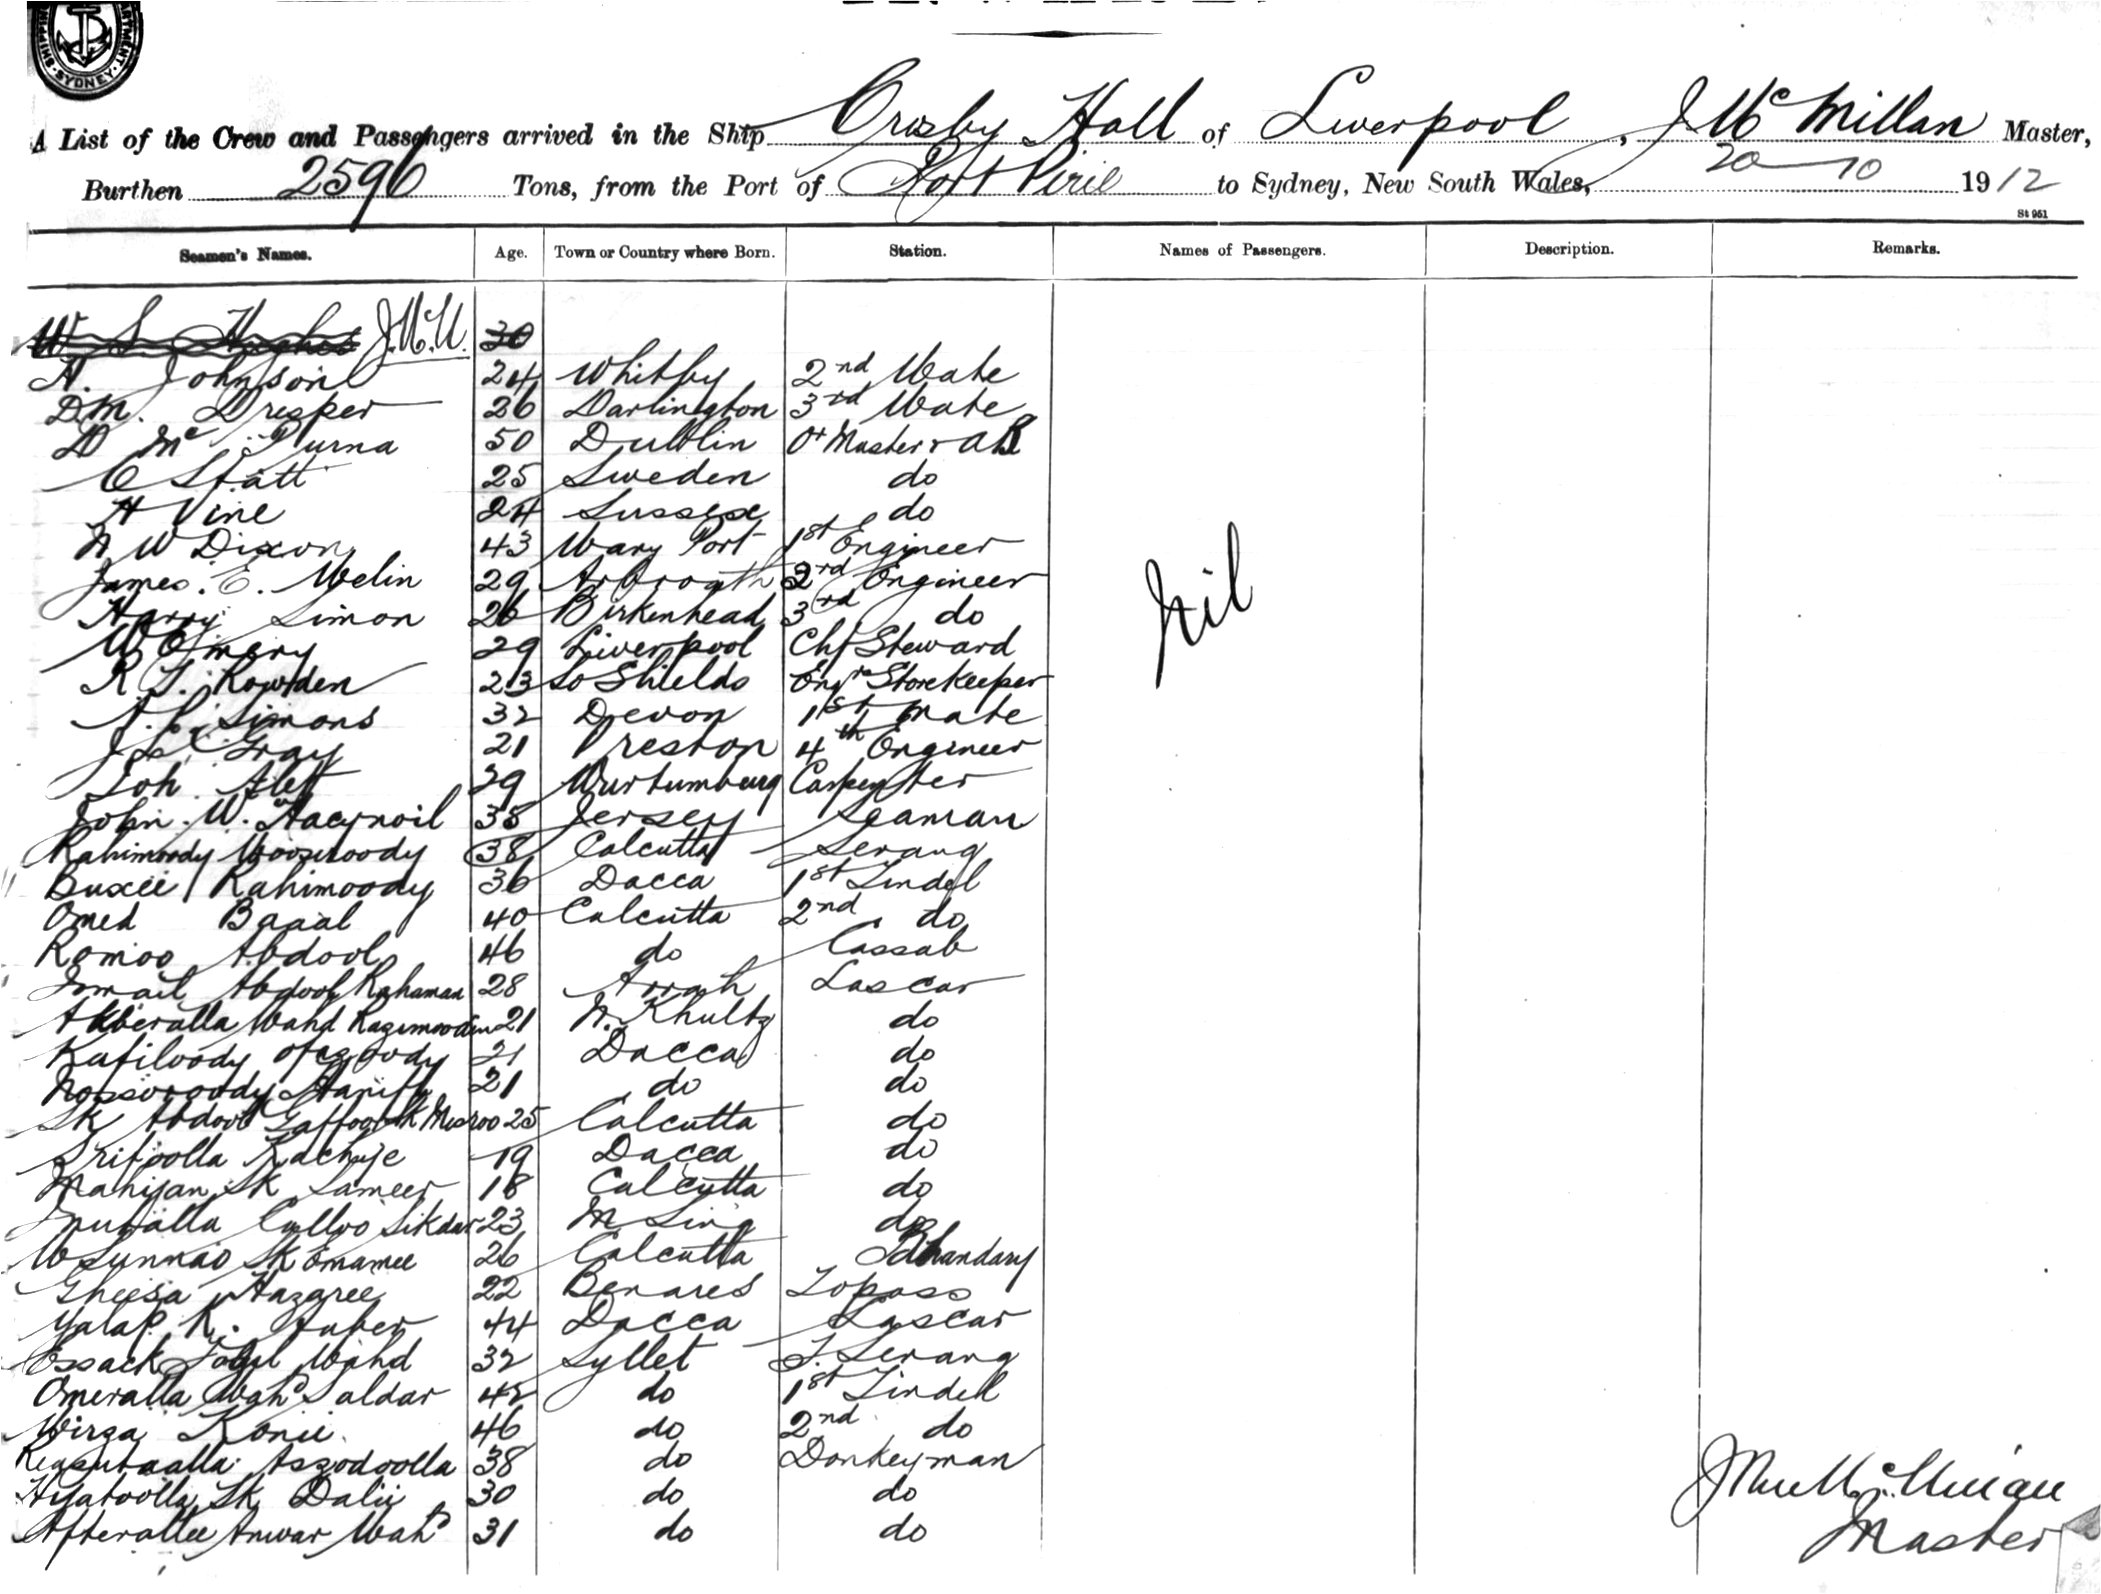 SHIPPING
SYDNEY
A List of the Crew and Passengers arrived in the Ship Crosby Hall of Liverpool, J. Mc Millan Master,
Burthen 2596 Tons, from the Port of Port Pirie to Sydney, New South Wales, 20-10 1912
St 961
Seamen's Names. Age. Town or Country where Born. Station. Names of Passengers. Description. Remarks.
W S Hughes J.Mc.M. 30
A. Johnson 24 Whitby 2nd Mate
D.M. Dresper 26 Darlington 3rd Mate
D Mc 50 Dublin Qr Master & AB
C Statt 25 Sweden do
H Vine 24 Sussex do
W Dixon 43 Mary Port 1st Engineer
James. E. Melin 29 Arbroath 2rd Engineer
Harry Simon 26 Birkenhead 3rd do
W Emery 29 Liverpool Chf Steward
R. J. Rowden 23 So Shields Engrs Storekeeper
Simons 32 Devon 1st Mate
Gray 21 Preston 4th Engineer
Joh. 29 Wurtumburg Carpenter
John. W. 38 Jersey Seaman
Rahimoody 38 Calcutta Serang
Buxee Rahimoody 36 Dacca 1st Tindel
Omed 40 Calcutta 2nd do
Romoo Abdool 46 do Cassab
Ismail Abdool Rahaman 28 Arrah Lascar
Akberalla Mahd 21 do
Kafiloody 21 Dacca do
21 do do
Sk Abdool Gaffoor Sk 25 Calcutta do
19 Dacca do
Mahijan Sk Sameer 18 Calcutta do
Culloo Sikdar 23 M Sing do
Sk Emamee 26 Calcutta Bhandary
Gheesa Hazaree 22 Benares Topass
44 Dacca Lascar
Essack Mahd 32 Syllet F. Serang
Omeralla Mahd 42 do 1st Tindel
Mirza 46 do 2nd do
38 do Donkeyman
Hyatoolla Sk 30 do do
Anwar Mahd 31 do do
Nil
Master